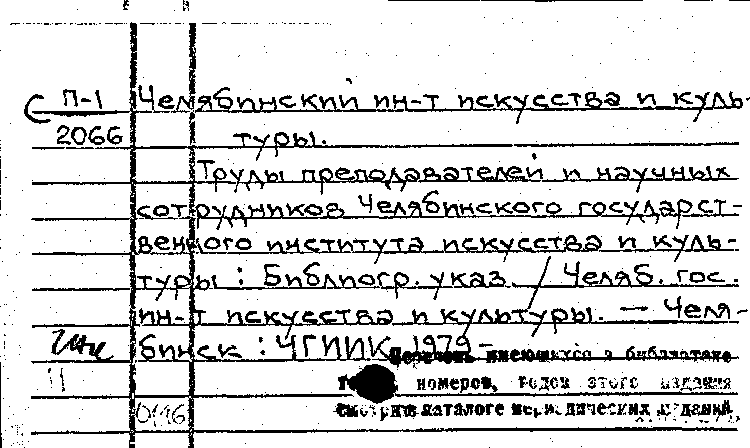 П-1 Челябинский ин-т искусства и куль-
2066 туры.
Труды преподавателей и научных
сотрудников Челябинского государст-
венного института искусства и куль-
туры : Библиогр. указ. / Челяб. гос.
ин-т искусства и культуры. — Челя-
бинск : ЧГИИК, 1979-
Перечень имеющихся в библиотеке
номеров, годов этого издания
смотрите каталоге периодических изданий